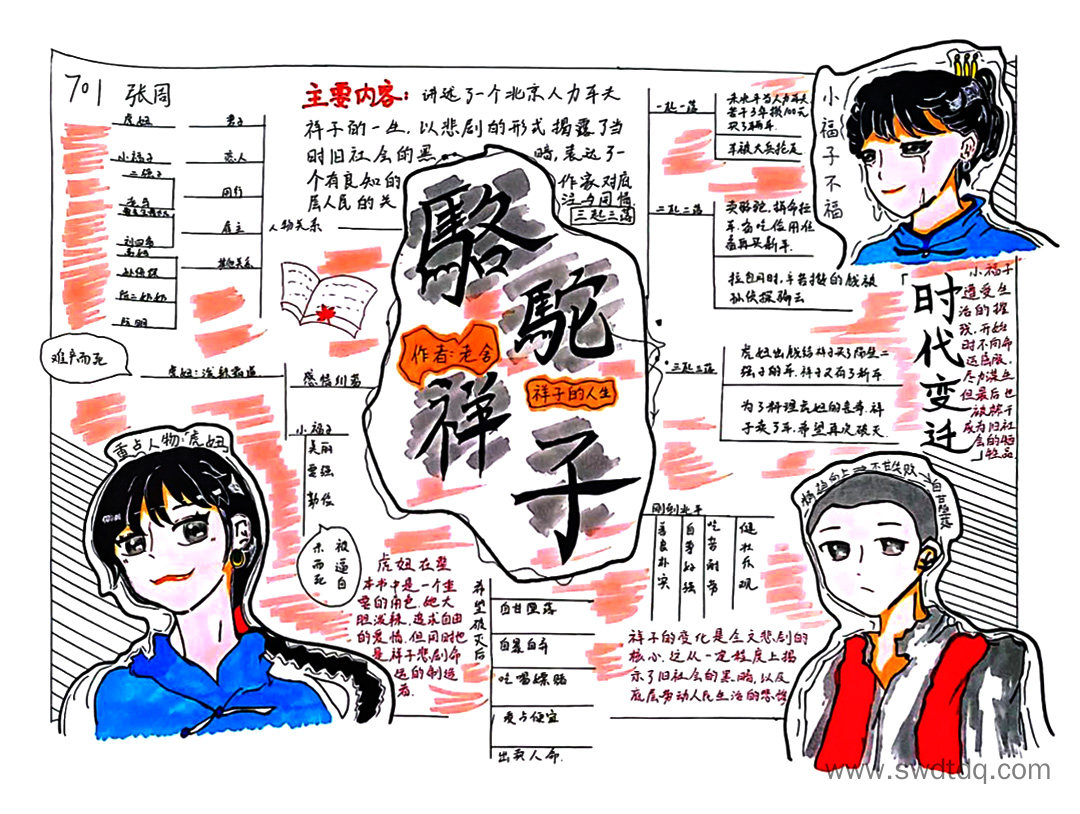 701 张周
主要内容：讲述了一个北京人力车夫
祥子的一生，以悲剧的形式揭露了当
时旧社会的黑暗，表达了一
个有良知的作家对底
层人民的关注与同情
三起三落
虎妞 妻子
小福子 恋人
二强子
同行
刘四爷
雇主
其他关系
孙侦探
阮明
人物关系
駱
駝
祥
子
作者：老舍
祥子的人生
一起一落
买了辆车
车被大兵抢走
二起二落
卖骆驼，拼命拉
车，省吃俭用准
备再买新车.
孙侦探骗去
三起三落
虎妞出钱给祥子买了邻二
为了料理虎妞的丧事，祥
子卖了车，希望再次破灭.
小福子不福
时代变迁
小福子
遭受生
活的摧
残，开始
时不向命
运屈服，
尽力谋生
但最后也
成为旧社
会的牺
牲品
难产而死
重点人物：虎妞
小福子
美丽
要强
勤俭
被逼自
杀而死
虎妞在整
本书中是一个重
要的角色，她大
胆泼辣，追求自由
的爱情，但同时也
是祥子悲剧命
运的制造
者.
刚到北平
善良朴实
自尊好强
吃苦耐劳
健壮乐观
希望破灭后
自甘堕落
自暴自弃
吃喝嫖赌
爱占便宜
出卖人命.
祥子的变化是全文悲剧的
核心，这从一定程度上揭
示了旧社会的黑暗，以及
底层劳动人民生活的悲惨
www.swdtdq.com